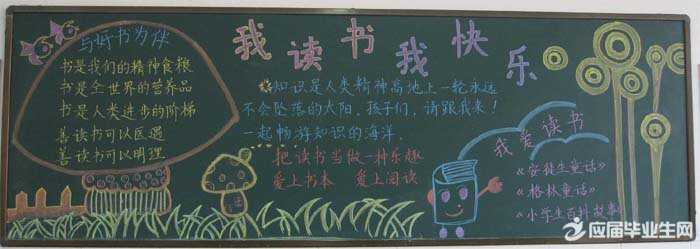 我读书
我快乐
与好书为伴
书是我们的精神食粮
书是全世界的营养品
书是人类进步的阶梯
善读书可以医愚
善读书可以明理
知识是人类精神高地上一轮永远
不会坠落的太阳，孩子们，请跟我来！
一起畅游知识的海洋.
把读书当做一种乐趣
爱上书本 爱上阅读
我爱读书
《安徒生童话》
《格林童话》
《小学生百科故事》
应届毕业生网